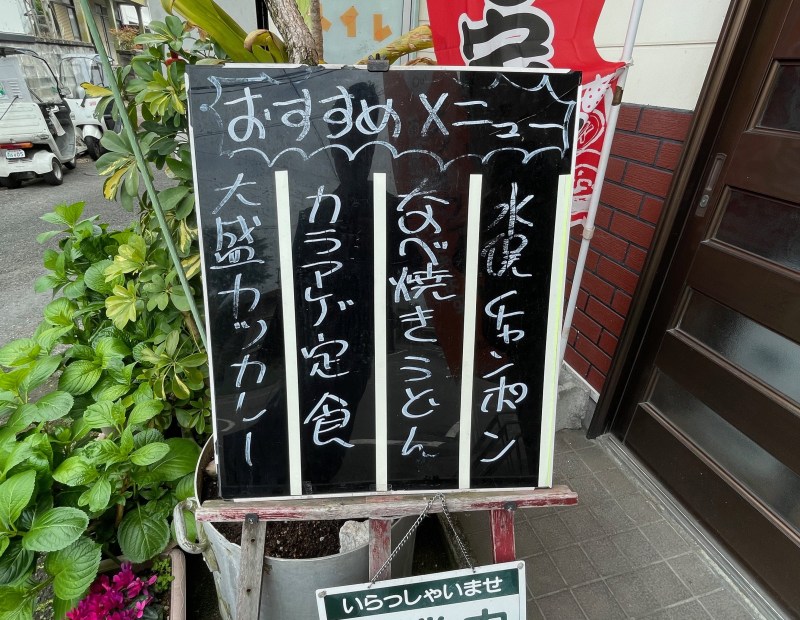 おすすめメニュー
水俣チャンポン
なべ焼きうどん
カラアゲ定食
大盛カツカレー
トイレ
いらっしゃいませ